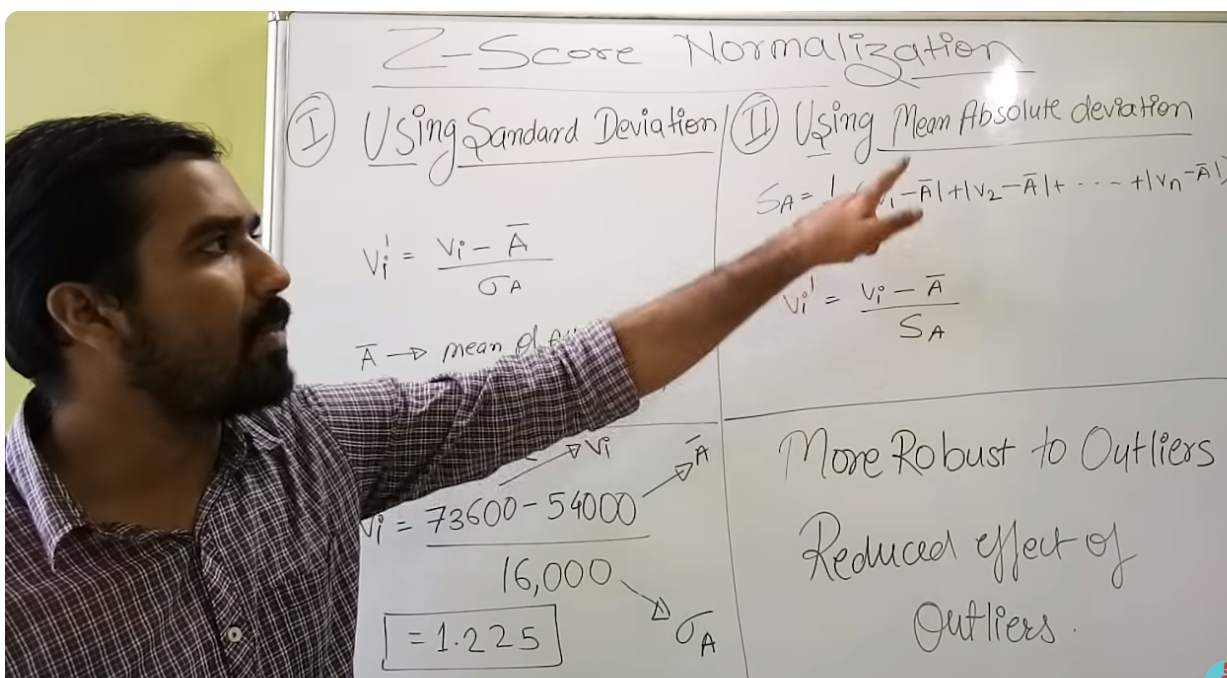 Z-Score Normalization
I Using Sandard Deviation
Vi' = Vi - Ā / σA
Ā → mean of
Vi
Ā
Vi = 73600 - 54000
16,000
σA
= 1.225
II Using Mean Absolute deviation
SA = - Ā| + |V2 - Ā| + ---- + |Vn - Ā|)
Vi' = Vi - Ā / SA
More Robust to Outliers
Reduced effect of
Outliers.